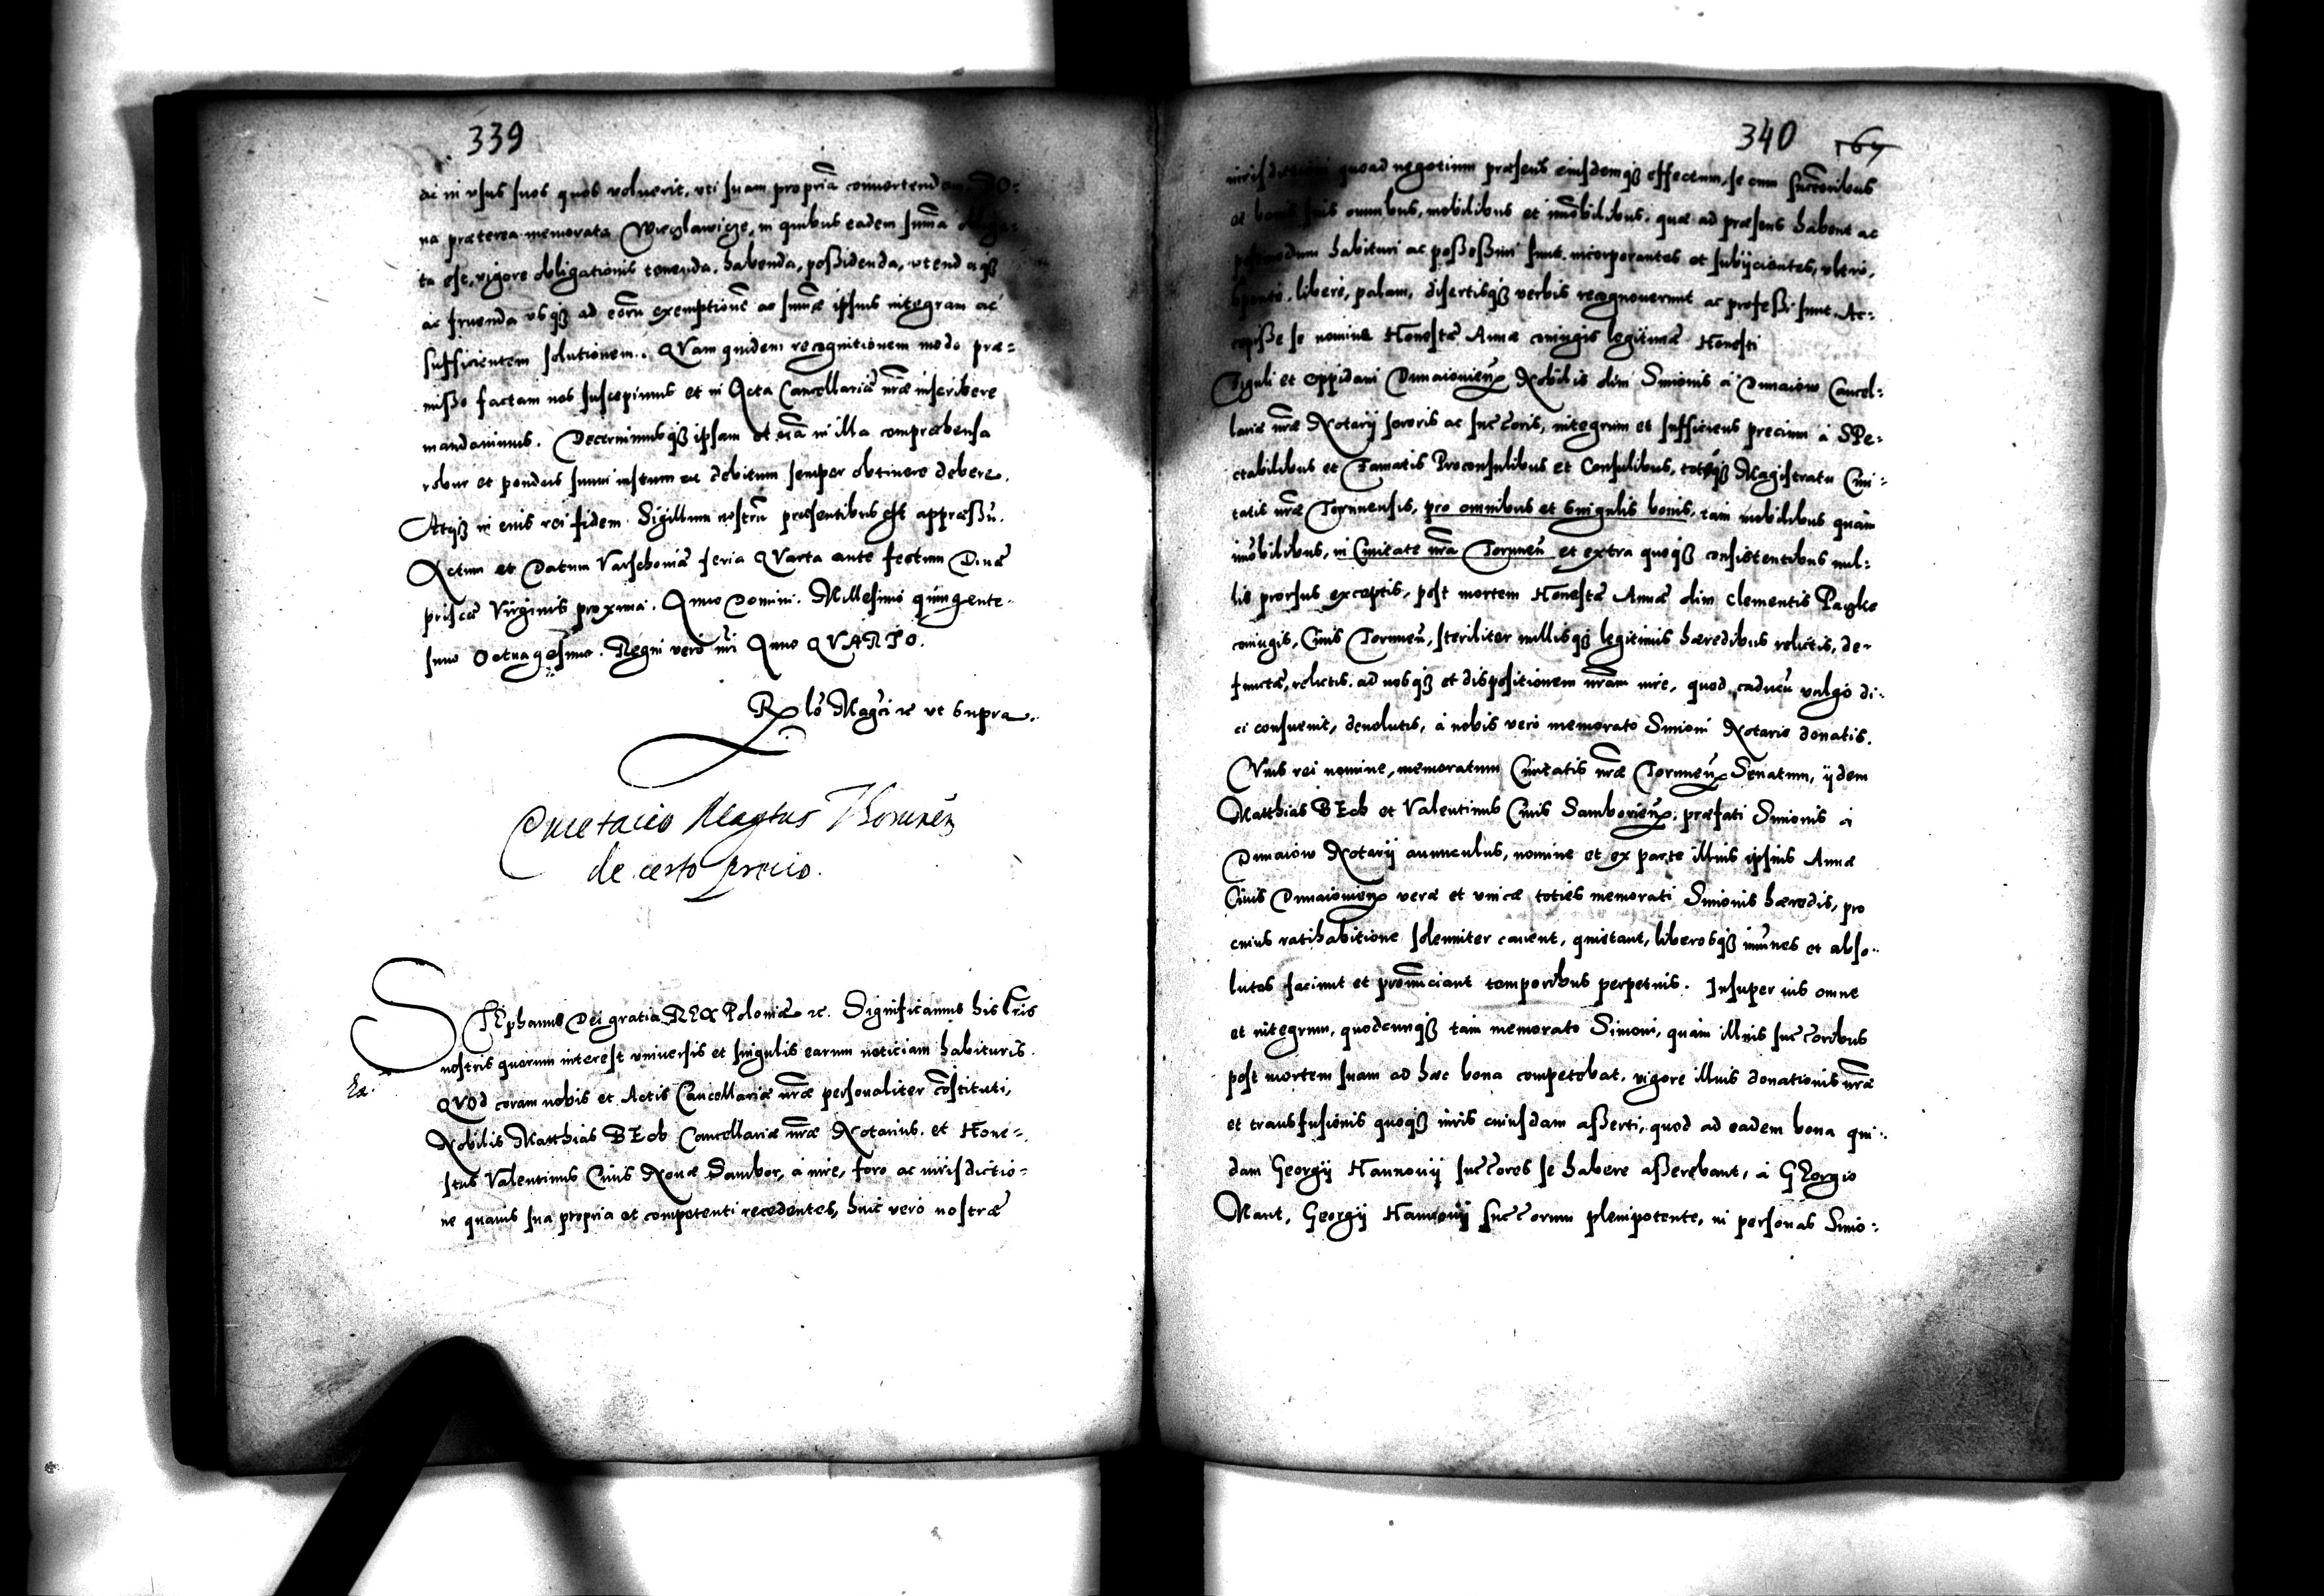 339
ac in vsus suos quos voluerit, vti suam propriã conuertendam. BO=
na præterea memorata Wieglawicze, in quibus eadem sum̃a
ta est, vigore obligationis tenenda, habenda, possidenda, vtendaqȝ
ac fruenda vsqȝ ad eorũ exemptionẽ ac sum̃æ ipsius integram ac
sufficientem solutionem. QVam quidem recognitionem modo præ=
misso factam nos suscepimus et in Acta Cancellariæ nr̃æ inscribere
mandauimus. Decernimusqȝ ipsam et oĩa in illa compræhensa
robur et pondus suum iustum ac debitum semper obtinere debere.
Atqȝ in euis rei fidem Sigillum nostrũ præsentibus est appressũ.
Actum et Datum Varschoviæ feria QVarta ante festum Diuæ
priscæ Virginis proxima. Anno Domini. Millesimo quingente-
simo Octuagesimo. Regni vero nr̃i Anno QVARTO.
Rlõ Magcĩ &c vt supra.
Quietatio Magtus Thorunẽn
de certo precio.
STEphanus Dei gratia REX Poloniæ &c. Significamus his lr̃is
nostris quorum interest vniuersis et singulis earum noticiam habituris.
Ea.
QVOd coram nobis et Actis Cancellariæ nr̃æ personaliter cõstituti,
Nobilis Matthias BEck Cancellariæ nr̃æ Notarius. et Hone=
stus Valentinus Ciuis Nouæ Sambor, a iure, foro ac iurisdictio=
ne quauis sua propria et competenti recedentes, huic vero nostræ
340 169
iurisdictioni quoad negotium præsens eiusdemqȝ effectum, se cum succẽoribus
ac bonis suis omnibus, mobilibus et im̃obilibus, quæ ad præsens habent ac
postmodum habituri ac possessuri sunt, incorporantes et subijcientes, vltro,
sponte, libere, palam, disertisqȝ verbis recognouerunt ac professi sunt. Ac=
cepisse se nomine Honestæ Annæ coniugis legitimæ Honesti
Figuli et oppidani Dunaioviens̃ Nobilis olim Simonis à Dunaiow Cancel=
lariæ nr̃æ Notarij sororis ac succ̃oris, integrum et sufficiens precium à SPe=
ctabilibus et Famatis Proconsulibus et Consulibus, totoqȝ Magistratu Ciui=
tatis nr̃æ Torunensis, pro omnibus et singulis bonis, tam mobilibus quam
im̃obilibus, in Ciuitate nr̃a Toruneñ et extra quoqȝ consistentibus nul=
lis prorsus exceptis, post mortem Honestæ Annæ olim Clementis
coniugis, Ciuis Toruneñ, steriliter nullisqȝ legitimis hæredibus relictis, de-
functæ, relictis, ad nosqȝ et dispositionem nr̃am iure, quod caducũ vulgo di=
ci consueuit, deuolutis, à nobis vero memorato Simoni Notario donatis.
CVius rei nomine, memoratum Ciuitatis nr̃æ Toruneñs Senatum, ijdem
Matthias BEck et Valentinus Ciuis Samborieñs, præfati Simonis à
Dunaiow Notarij auunculus, nomine et ex parte illius ipsius Annæ
Ciuis Dunaiovieñs veræ et vnicæ toties memorati Simonis hæredis, pro
cuius ratihabitione solenniter cauent, quietant, liberosqȝ im̃unes et abso=
lutos faciunt et pronũciant temporibus perpetuis. Insuper ius omne
et integrum, quodcunqȝ tam memorato Simoni, quam illius succ̃oribus
post mortem suam ad hæc bona competebat, vigore illius donationis nr̃æ
et transfusionis quoqȝ iuris cuiusdam asserti, quod ad eadem bona qui=
dam Georgij Hannouij succ̃ores se habere asserebant, à GEorgio
Mant, Georgij Hannouij succ̃orum plenipotente, in personas Simo=